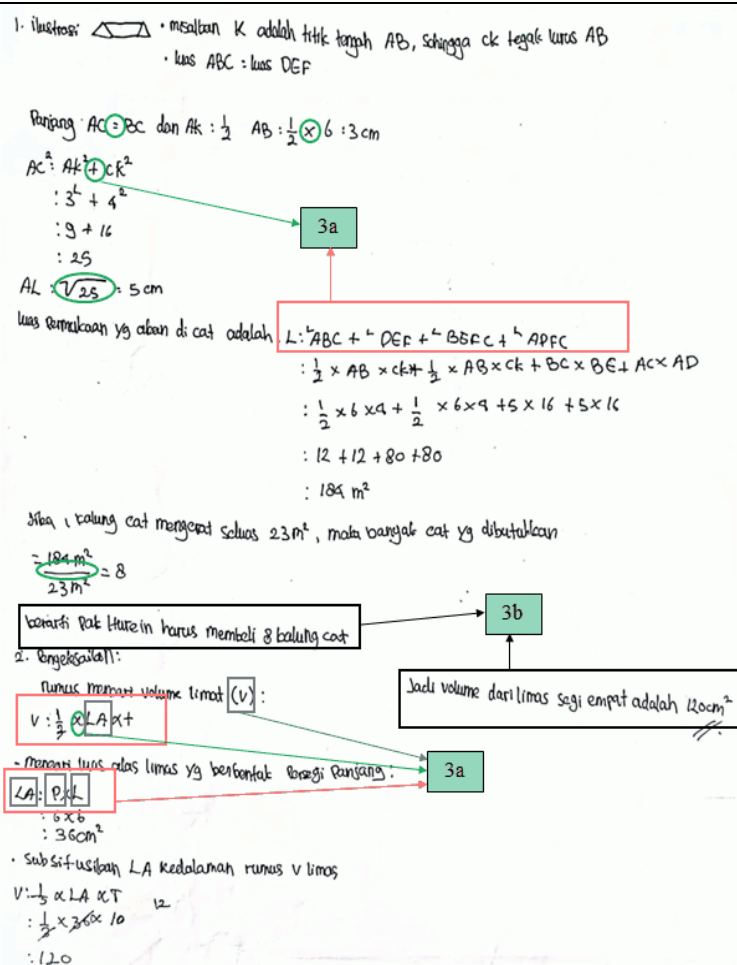 1. ilustrasi • misalkan K adalah titik tengah AB, sehingga ck tegak lurus AB
• luas ABC = luas DEF
Panjang AC = BC dan AK : 1/2 AB : 1/2 × 6 : 3 cm
AC² : AK² + CK²
: 3² + 4²
: 9 + 16
: 25
3a
AL : √25 = 5 cm
luas Permukaan yg akan di cat adalah L : ᴸABC + ᴸ DEF + ᴸ BEFC + ᴸ APFC
: 1/2 × AB × CK + 1/2 × AB × CK + BC × BE + AC × AD
: 1/2 × 6 × 4 + 1/2 × 6 × 4 + 5 × 16 + 5 × 16
: 12 + 12 + 80 + 80
: 184 m²
Jika 1 kalung cat mengecat seluas 23 m², maka banyak cat yg dibutuhkan
= 184 m² / 23 m² = 8
berarti Pak Hurein harus membeli 8 balung cat
3b
2. Pengeksailan :
rumus mencari volume limat (v) :
Jadi volume dari limas segi empat adalah 120 cm²
V : 1/3 × LA × t
- mencari luas alas limas yg berbentuk Persegi Panjang :
3a
LA : P × L
: 6 × 6
: 36 cm²
• Subsifusikan LA kedalaman rumus v limas
V : 1/3 × LA × T
12
: 1/3 × 36 × 10
: 120